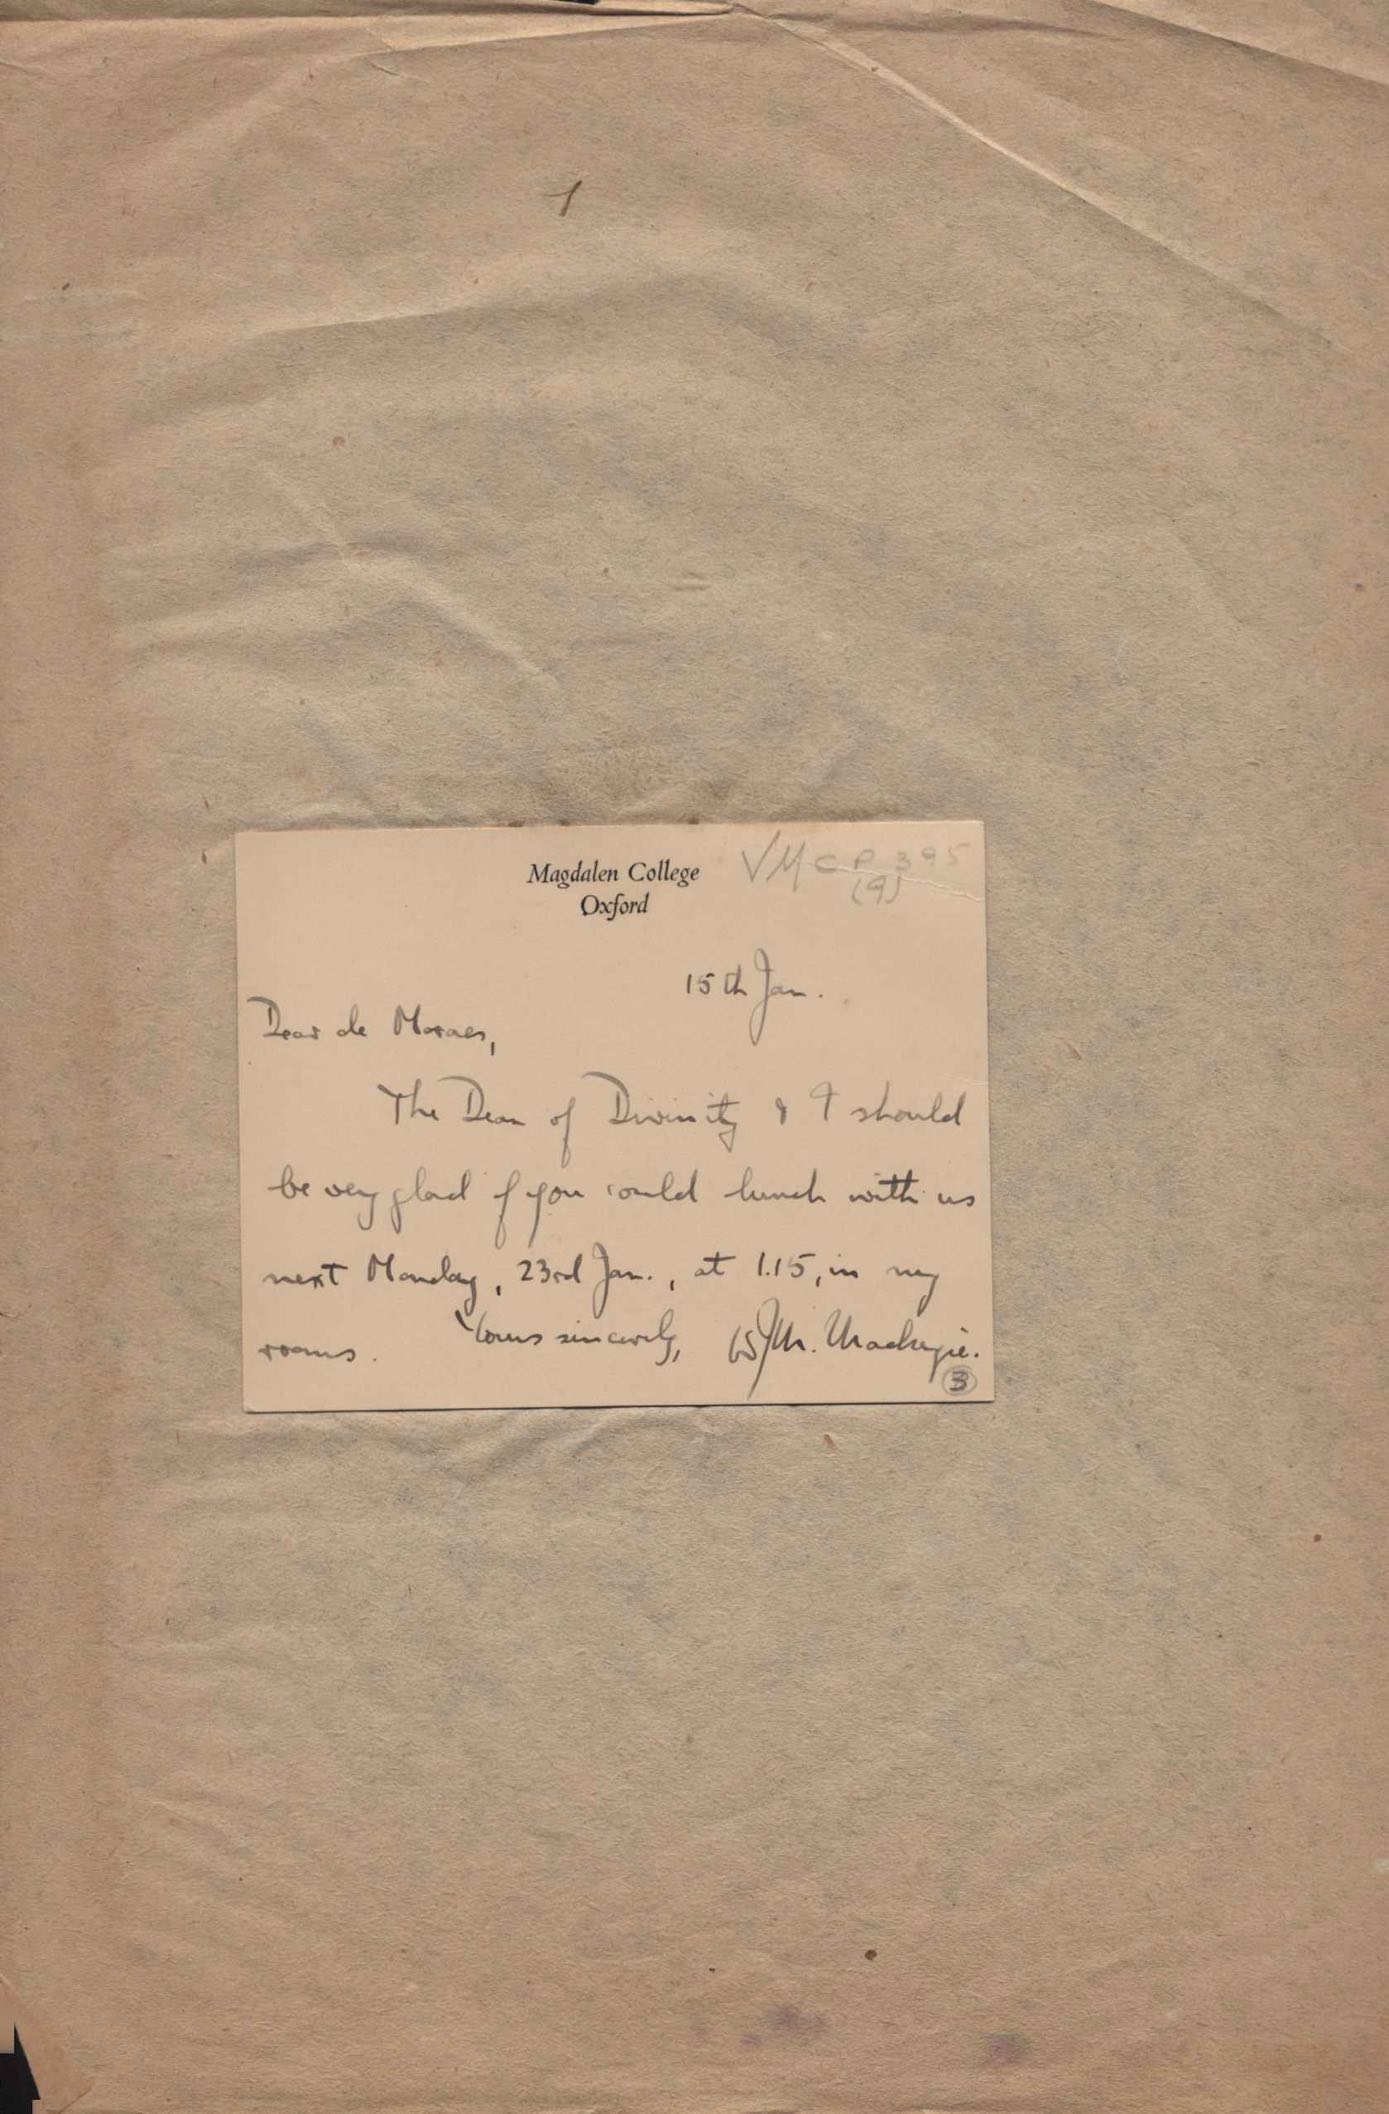 1
Magdalen College
Oxford
VMCP 395
(9)
15th Jan.
Dear de Moraes,
The Dean of Divinity & I should
be very glad if you could lunch with us
next Monday, 23rd Jan., at 1.15, in my
rooms. Yours sincerely, W J M. Mackenzie.
3